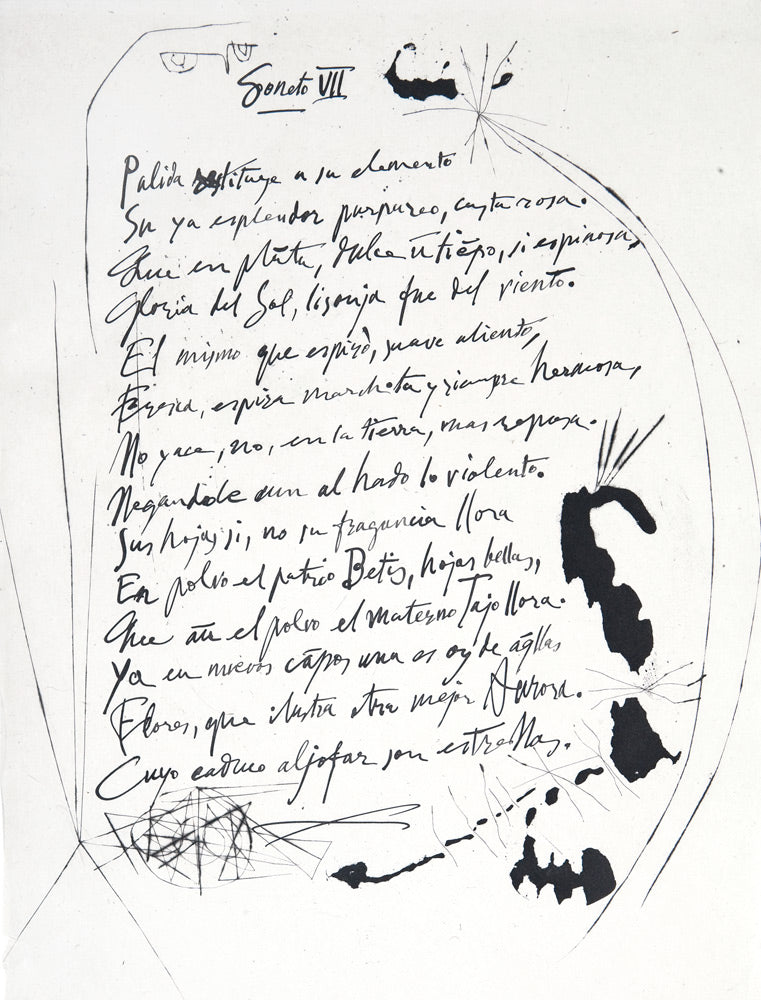 Soneto VII
Palida restituye a su elemento
Su ya esplendor purpureo, casta rosa.
Que en plāta, dulce ū tiēpo, si espinosa,
Gloria del Sol, lisonja fue del viento.
El mismo que espirò, suave aliento,
Fresca, espira marchita y siempre hermosa,
No yace, no, en la tierra, mas reposa.
Negandole aun al hado lo violento.
Sus hojas si, no su fragancia llora
En polvo el patrio Betis, hojas bellas,
Que aū el polvo el materno Tajo llora.
Ya en nuevos cāpos una es oy de aq̄llas
Flores, que ilustra otra mejor Aurora.
Cuyo caduco aljofar son estrellas.